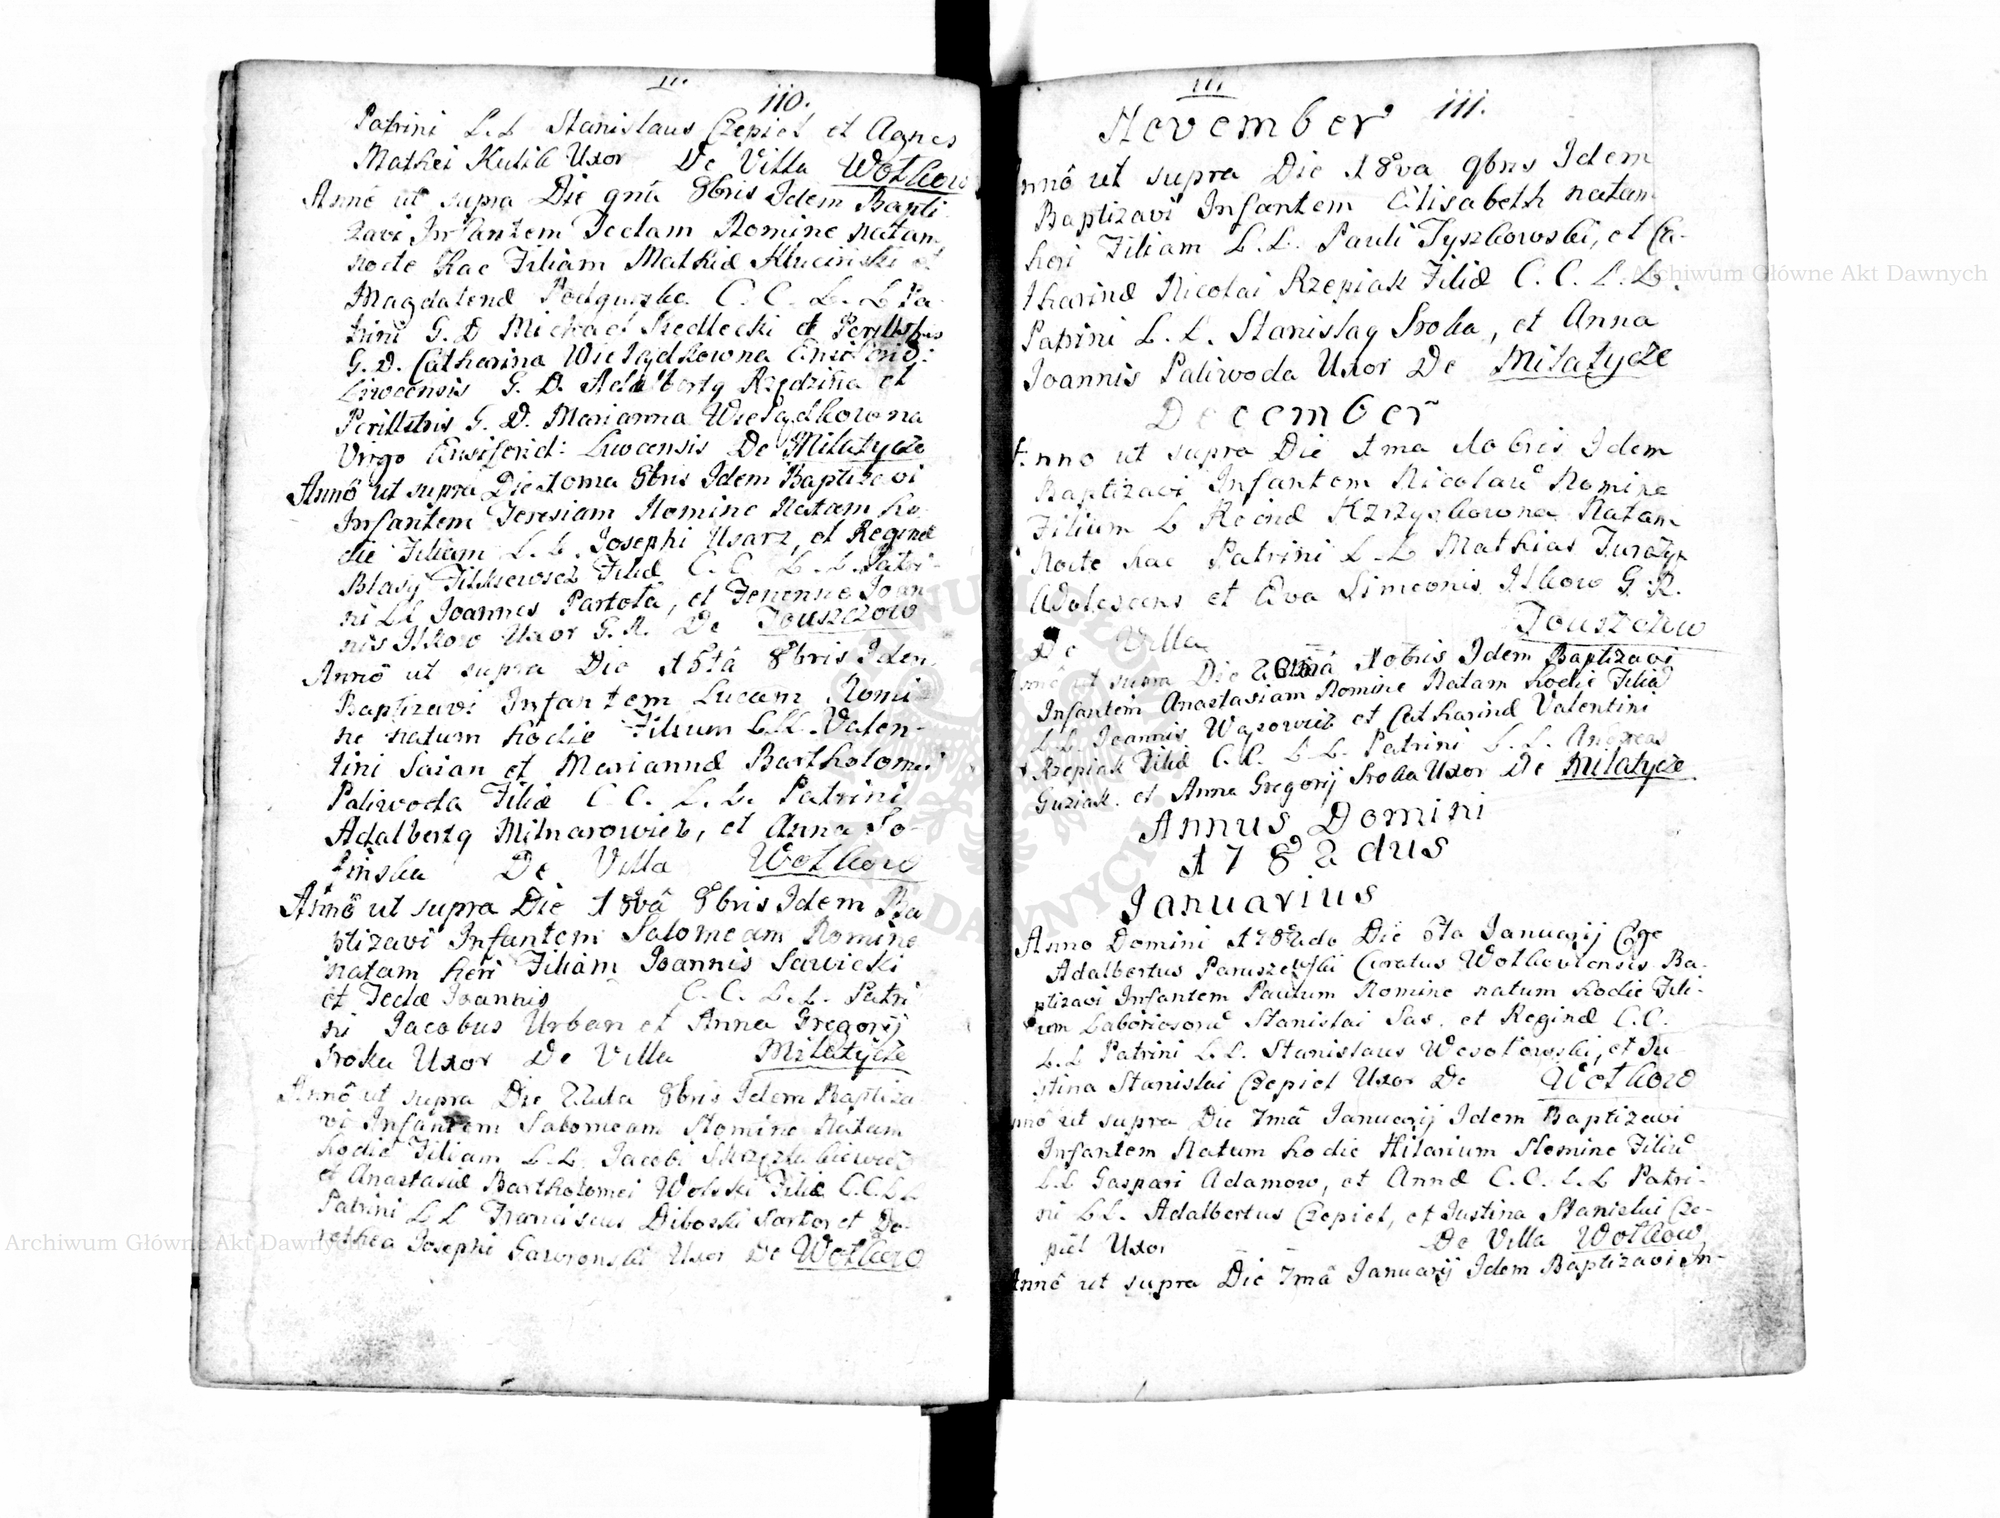 110.
Patrini L. L Stanislaus Czepiel et Agnes
Mathei Kulik Uxor De Villa Wołkow
Annô ut supra Die 9nâ 8bris Idem Bapti-
zavi Infantem Teclam Nomine natam
nocte hac Filiam Mathiæ Klucinski et
Magdalenæ C. C. L. L Pa-
trini G. D Michael Siedlecki et Perillstris
G. D. Catharina
G. D. Adalbertq et
Perillstris G. D. Marianna
Virgo Ensiferid: De Miłatycze
Annô ut supra Die 10ma 8bris Idem Baptizavi
Infantem Teresiam Nomine Natam ho-
die Filiam L. L. Josephi Usarz, et Reginæ
Blasij Filiæ C. C. L. L. Patri-
ni LL Joannes Partoła, et Joan-
nis Ilkow Uxor G. R. De Touszczow
Annô ut supra Die 16tâ 8bris Idem
Baptizavi Infantem Lucam Nomi-
ne natum hodie Filium L.L. Valen-
tini Saian et Mariannæ Bartholomei
Paliwoda Filiæ C C. L. L. Patrini
Adalbertq Milnarowicz, et Anna
De Villa Wołkow
Annô ut supra Die 18vâ 8bris Idem Ba
ptizavi Infantem Salomeam Nomine
natam heri Filiam Joannis Sawicki
et Teclæ Joannis C. C. L. L. Patri
ni Jacobus Urban et Anna Gregorij
Sroka Uxor De Villa Miłatycze
Annô ut supra Die 8bris Idem Baptiza
vi Infantem Salomeam Nomine Natam
hodie Filiam L. L. Jacobi
et Anastasiæ Bartholomei Wolski Filiæ C. C. L L
Patrini L L Franciscus Diboski Sartor et Do-
rothea Josephi Gawronski Uxor De Wołkow
111
111.
November
Annô ut supra Die 18va 9bris Idem
Baptizavi Infantem Elisabeth natam
heri Filiam L. L. Pauli Tyszkowski, et Ca-
tharinæ Nicolai Rzepiak Filiæ C. C. L. L.
Patrini L. L. Stanislaq Sroka, et Anna
Joannis Paliwoda Uxor De Miłatycze
December
Anno ut supra Die 1ma Xobris Idem
Baptizavi Infantem Nicolaū Nomine
Filium L Natam
Nocte hac Patrini L L Mathias
Adolescens et Eva Simeonis Ilkow G. R.
De Villa Touszczow
Annô ut supra Die Xobris Idem Baptizavi
Infantem Anastasiam Nomine Natam hodie Filiā
L. L. Joannis Wąsowicz et Catharinæ Valentini
Rzepiak Filiæ C. C. L L. Patrini L. L. Andreas
Guziak. et Anna Gregorij Sroka Uxor De Miłatycze
Annus Domini
1782dus
Januarius
Anno Domini 1782do Die 6ta Januarij Ego
Adalbertus Paruszewski Curatus Wołkoviensis Ba-
ptizavi Infantem Paulum Nomine natum hodie Fili-
um Laboriosorū Stanislai Sas. et Reginæ C. C.
L. L Patrini L. L. Stanislaus Wesołowski, et Ju-
stina Stanislai Czepiel Uxor De Wołkow
Annô ut supra Die 7mâ Januarij Idem Baptizavi
Infantem Natum hodie Hilarium Nomine Filiū
L. L Gaspari Adamow, et Annæ C. C. L. L Patri-
ni L L. Adalbertus Czepiel, et Justina Stanislai Cze-
piel Uxor De Villa Wołkow
Annô ut supra Die 7mâ Januarij Idem Baptizavi In-
Archiwum Główne Akt Dawnych
Archiwum Główne Akt Dawnych
ARCHIWUM GŁÓWNE AKT DAWNYCH